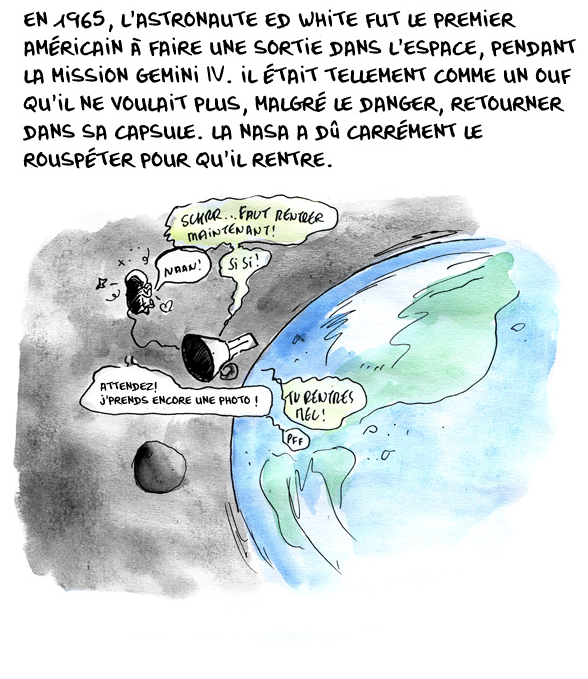 EN 1965, L'ASTRONAUTE ED WHITE FUT LE PREMIER
AMÉRICAIN À FAIRE UNE SORTIE DANS L'ESPACE, PENDANT
LA MISSION GEMINI IV. IL ÉTAIT TELLEMENT COMME UN OUF
QU'IL NE VOULAIT PLUS, MALGRÉ LE DANGER, RETOURNER
DANS SA CAPSULE. LA NASA A DÛ CARRÉMENT LE
ROUSPÉTER POUR QU'IL RENTRE.
SCHRR...FAUT RENTRER
MAINTENANT!
NAAN!
SI SI!
ATTENDEZ!
J'PRENDS ENCORE UNE PHOTO !
TU RENTRES
MEC!
PFF